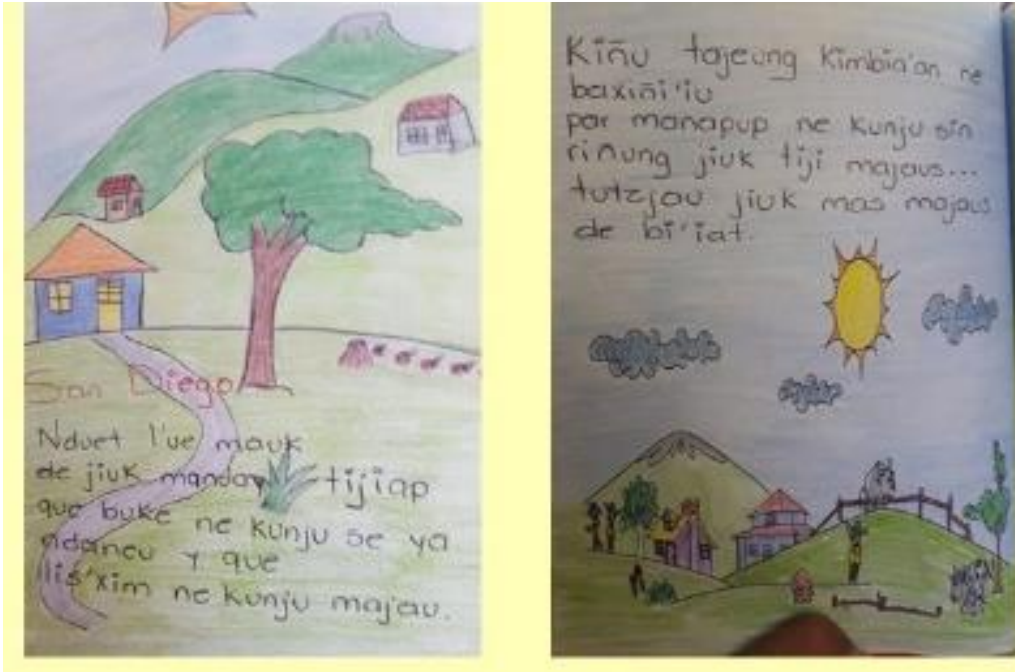 San Diego
Nduet l'ue mauk
de jiuk mandoy tijiap
que buke ne kunju se ya
ndaneu y que
lis'xim ne kunju majau.
Kiñu tajeung kimbia'an ne
baxiñi'iu
par manapup ne kunju sin
riñung jiuk tiji majaus...
tutzjau jiuk mas majaus
de bi'iat.